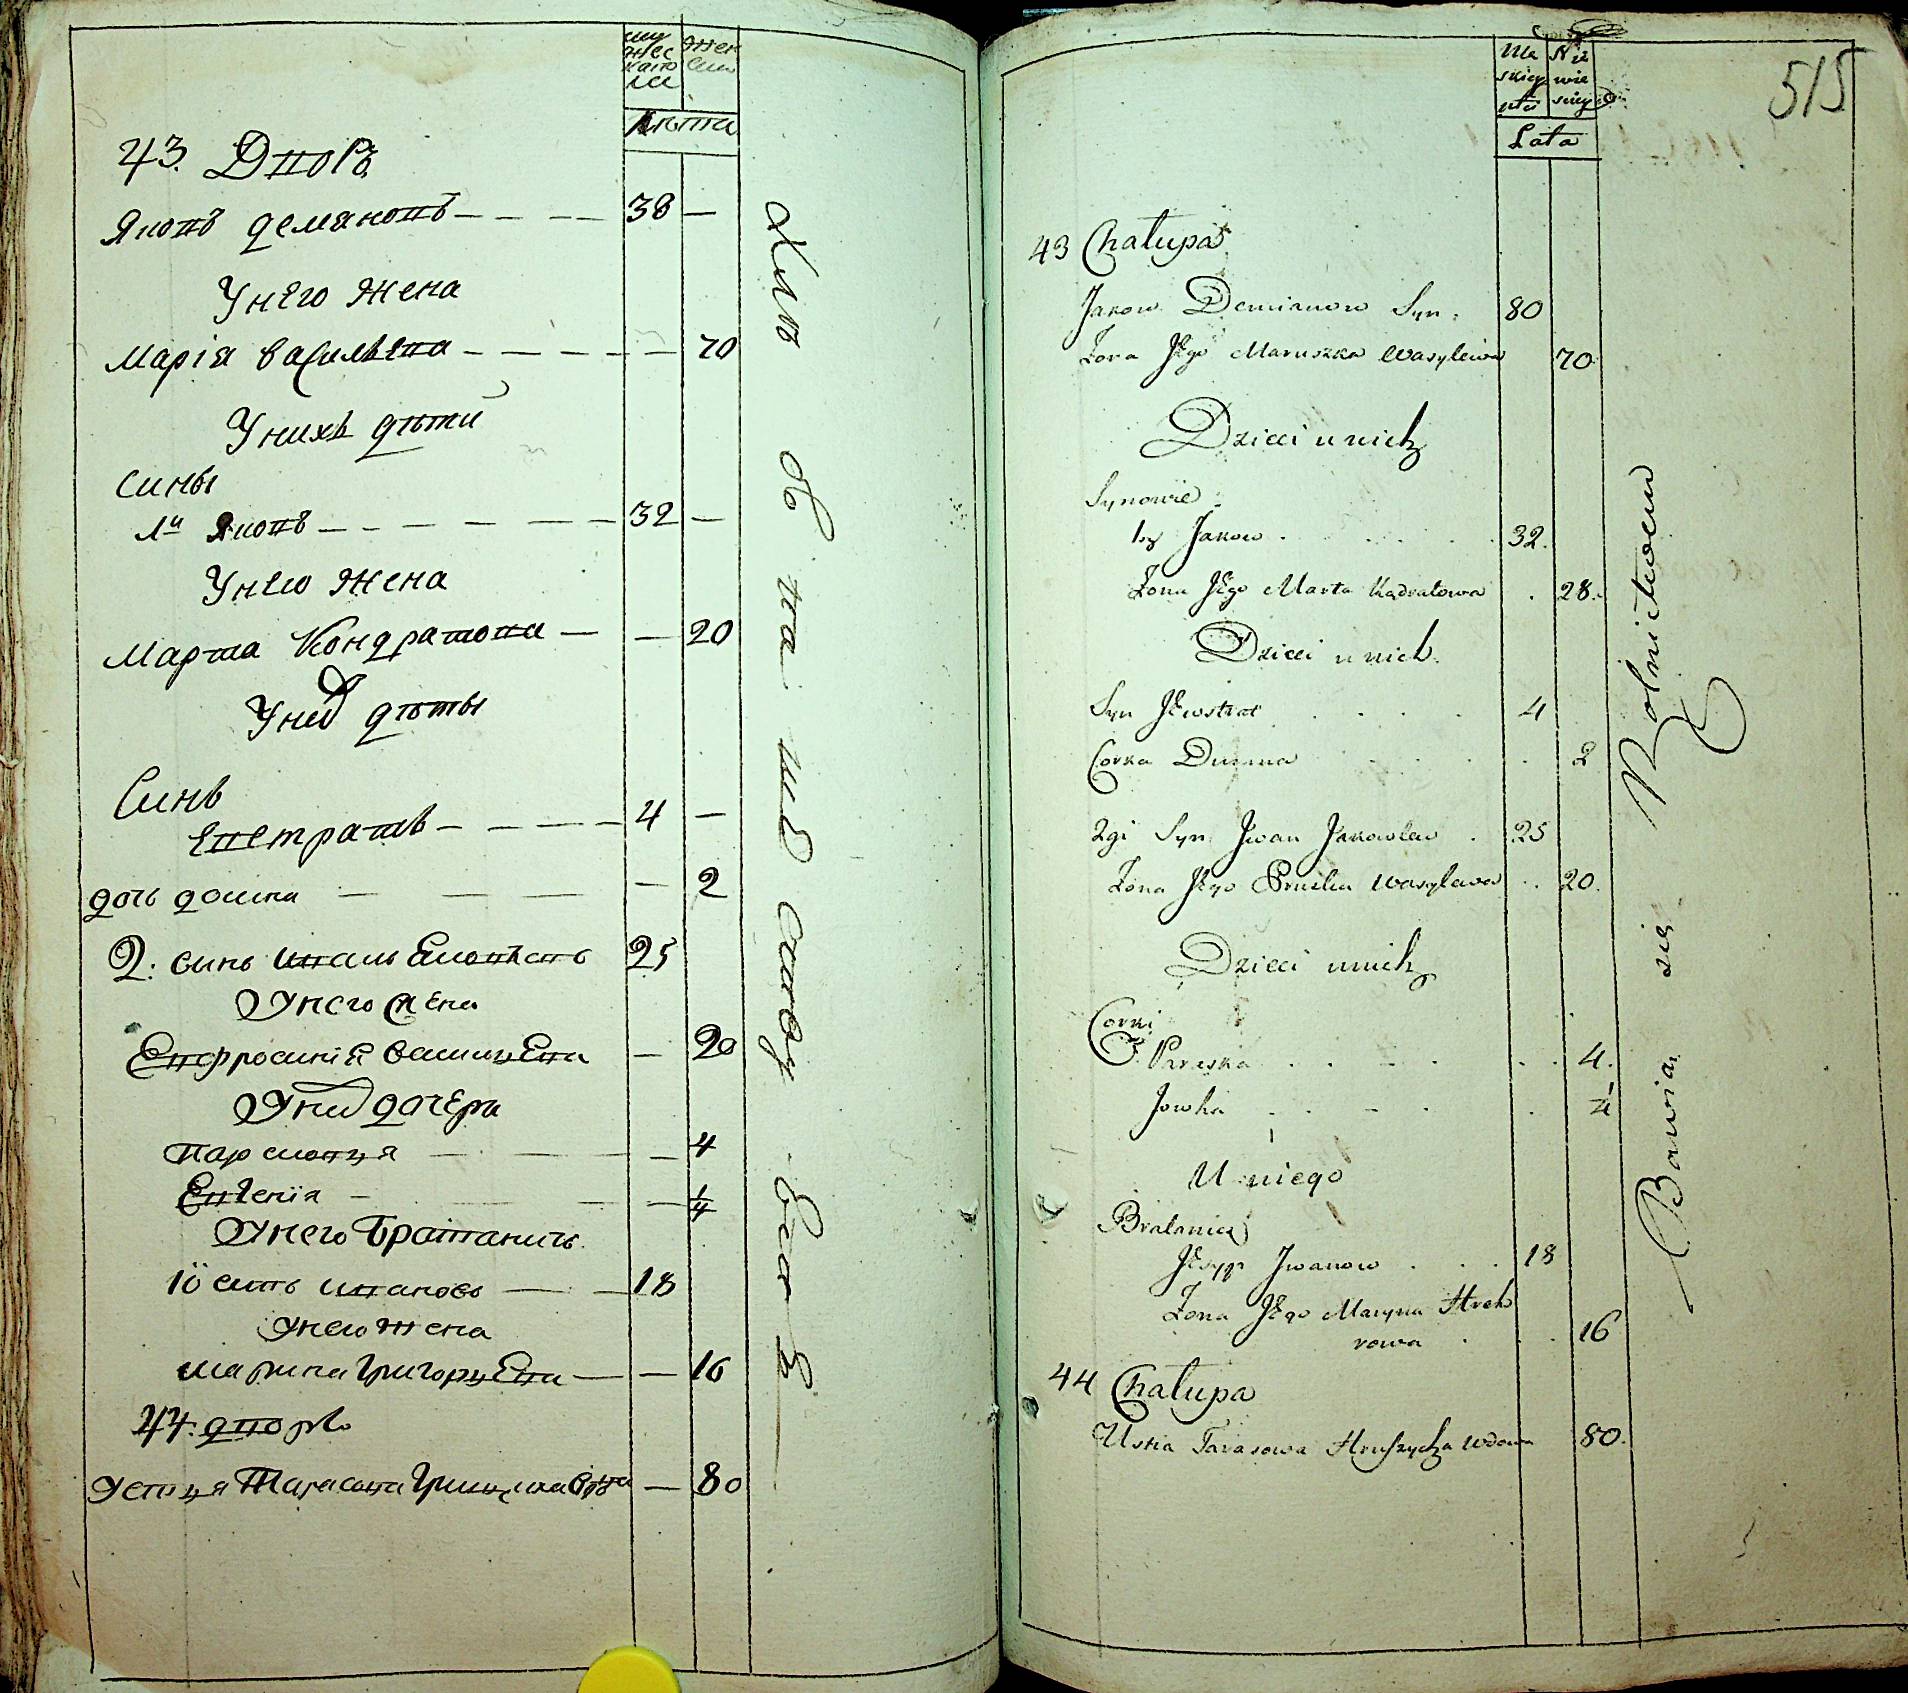 муж
жес
каго
ли
жен
ски
Лѣта
43. Дворъ
Яковъ демяновъ 38 —
Унего жена
Марія васильева — 70
Унихъ дѣти
Сины
1й Яковъ 32 —
Унего жена
Марта Кондратова — 20
Уних дѣты
Синъ
Евстратъ 4 —
дочь домна — 2
2: синь иванъ Яковлевъ 25
Унего жена
Евфросинія василиева — 20
Уних дочери
Парсковія — 4
Евгенія — 1/4
Унего Братаничъ
Юсипъ ивановъ 18
Унего жена
марина Григориева — 16
44. дворъ
Устиня Тарасова Грищиха вдова — 80
Хлѣбопашеством
515
Mę
skiey
płci
Nie
wie
sciey
Lata
43 Chałupa
Jakow Demianow Syn. 80
Żona Jego Maruszka Wasylewa 70
Dzieci u nich
Synowie
1szy Jakow 32.
Żona Jego Marta Kądratowa 28.
Dzieci u nich.
Syn Jewstrat 4
Corka Dumna 2
2gi Syn Jwan Jakowlew 25
Żona Jego Pruska Wasylewa 20.
Dzieci u nich
Corki
Paraska 4.
Jowha 1/4
U niego
Bratanicz
Jesyp Jwanow 18
Żona Jego Maryna Hreh
rowa 16
44 Chałupa
Ustia Tarasowa Hryszycha Wdowa 80.
Bawia się Rolnictwem